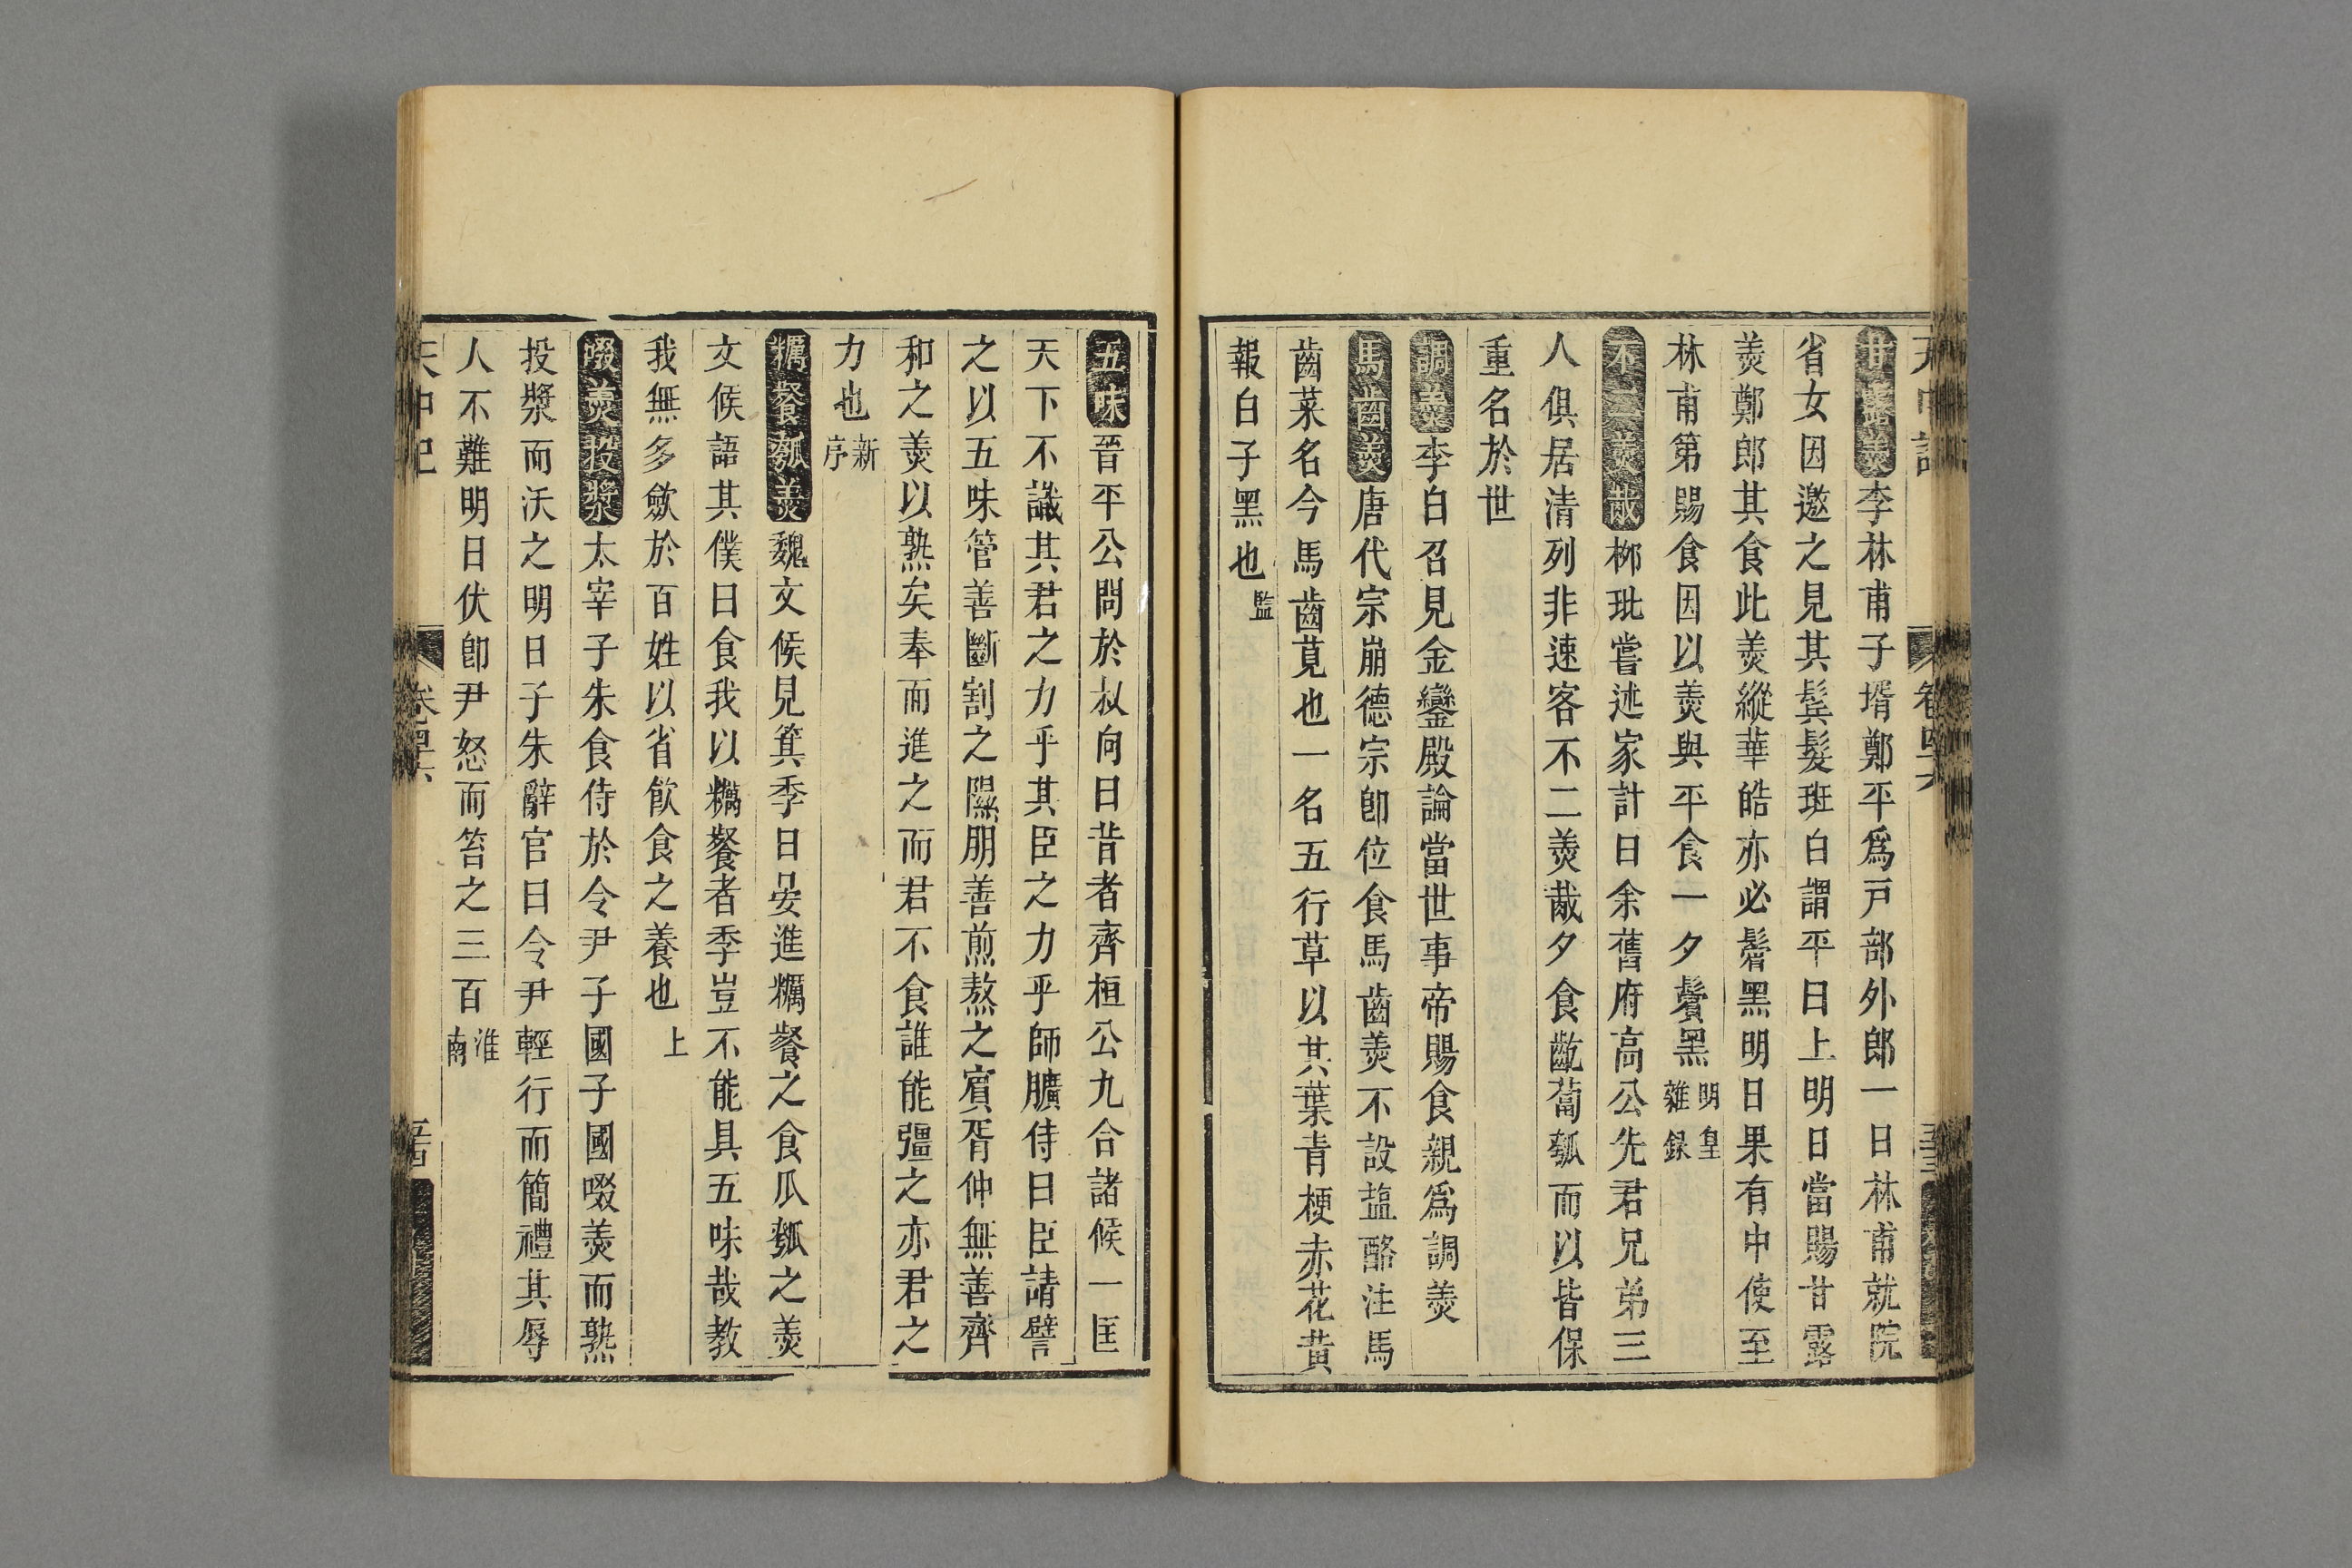 甘露羹李林甫子壻鄭平爲戸部外郎一日林甫就院
省女因邀之見其鬂髮斑白謂平曰上明日當賜甘露
羹鄭郎其食此羹縱華皓亦必鬒黑明日果有中使至
林甫第賜食因以羹與平食一夕鬢黑明皇雜録
不二羹胾栁玭嘗述家計曰余舊府高公先君兄弟三
人俱居清列非速客不二羹胾夕食齕蔔瓠而以皆保
重名於世
調羹李白召見金鑾殿論當世事帝賜食親爲調羹
馬齒羹唐代宗崩德宗卽位食馬齒羹不設盬酪注馬
齒菜名今馬齒莧也一名五行草以其葉青梗赤花黄
報白子黑也監
五味晉平公問於叔向曰昔者齊桓公九合諸候一匡
天下不識其君之力乎其臣之力乎師曠侍曰臣請譬
之以五味管善斷割之隰朋善煎熬之賓胥仲無善齊
和之羹以熟矣奉而進之而君不食誰能彊之亦君之
力也新序
糲餐瓠羹魏文候見箕季日晏進糲餐之食瓜瓠之羹
文候語其僕曰食我以糲餐者季豈不能具五味哉教
我無多斂於百姓以省飮食之養也上
啜羹投漿太宰子朱食侍於令尹子國子國啜羹而熟
投漿而沃之明日子朱辭官曰令尹輕行而簡禮其辱
人不難明日伏卽尹怒而笞之三百淮南